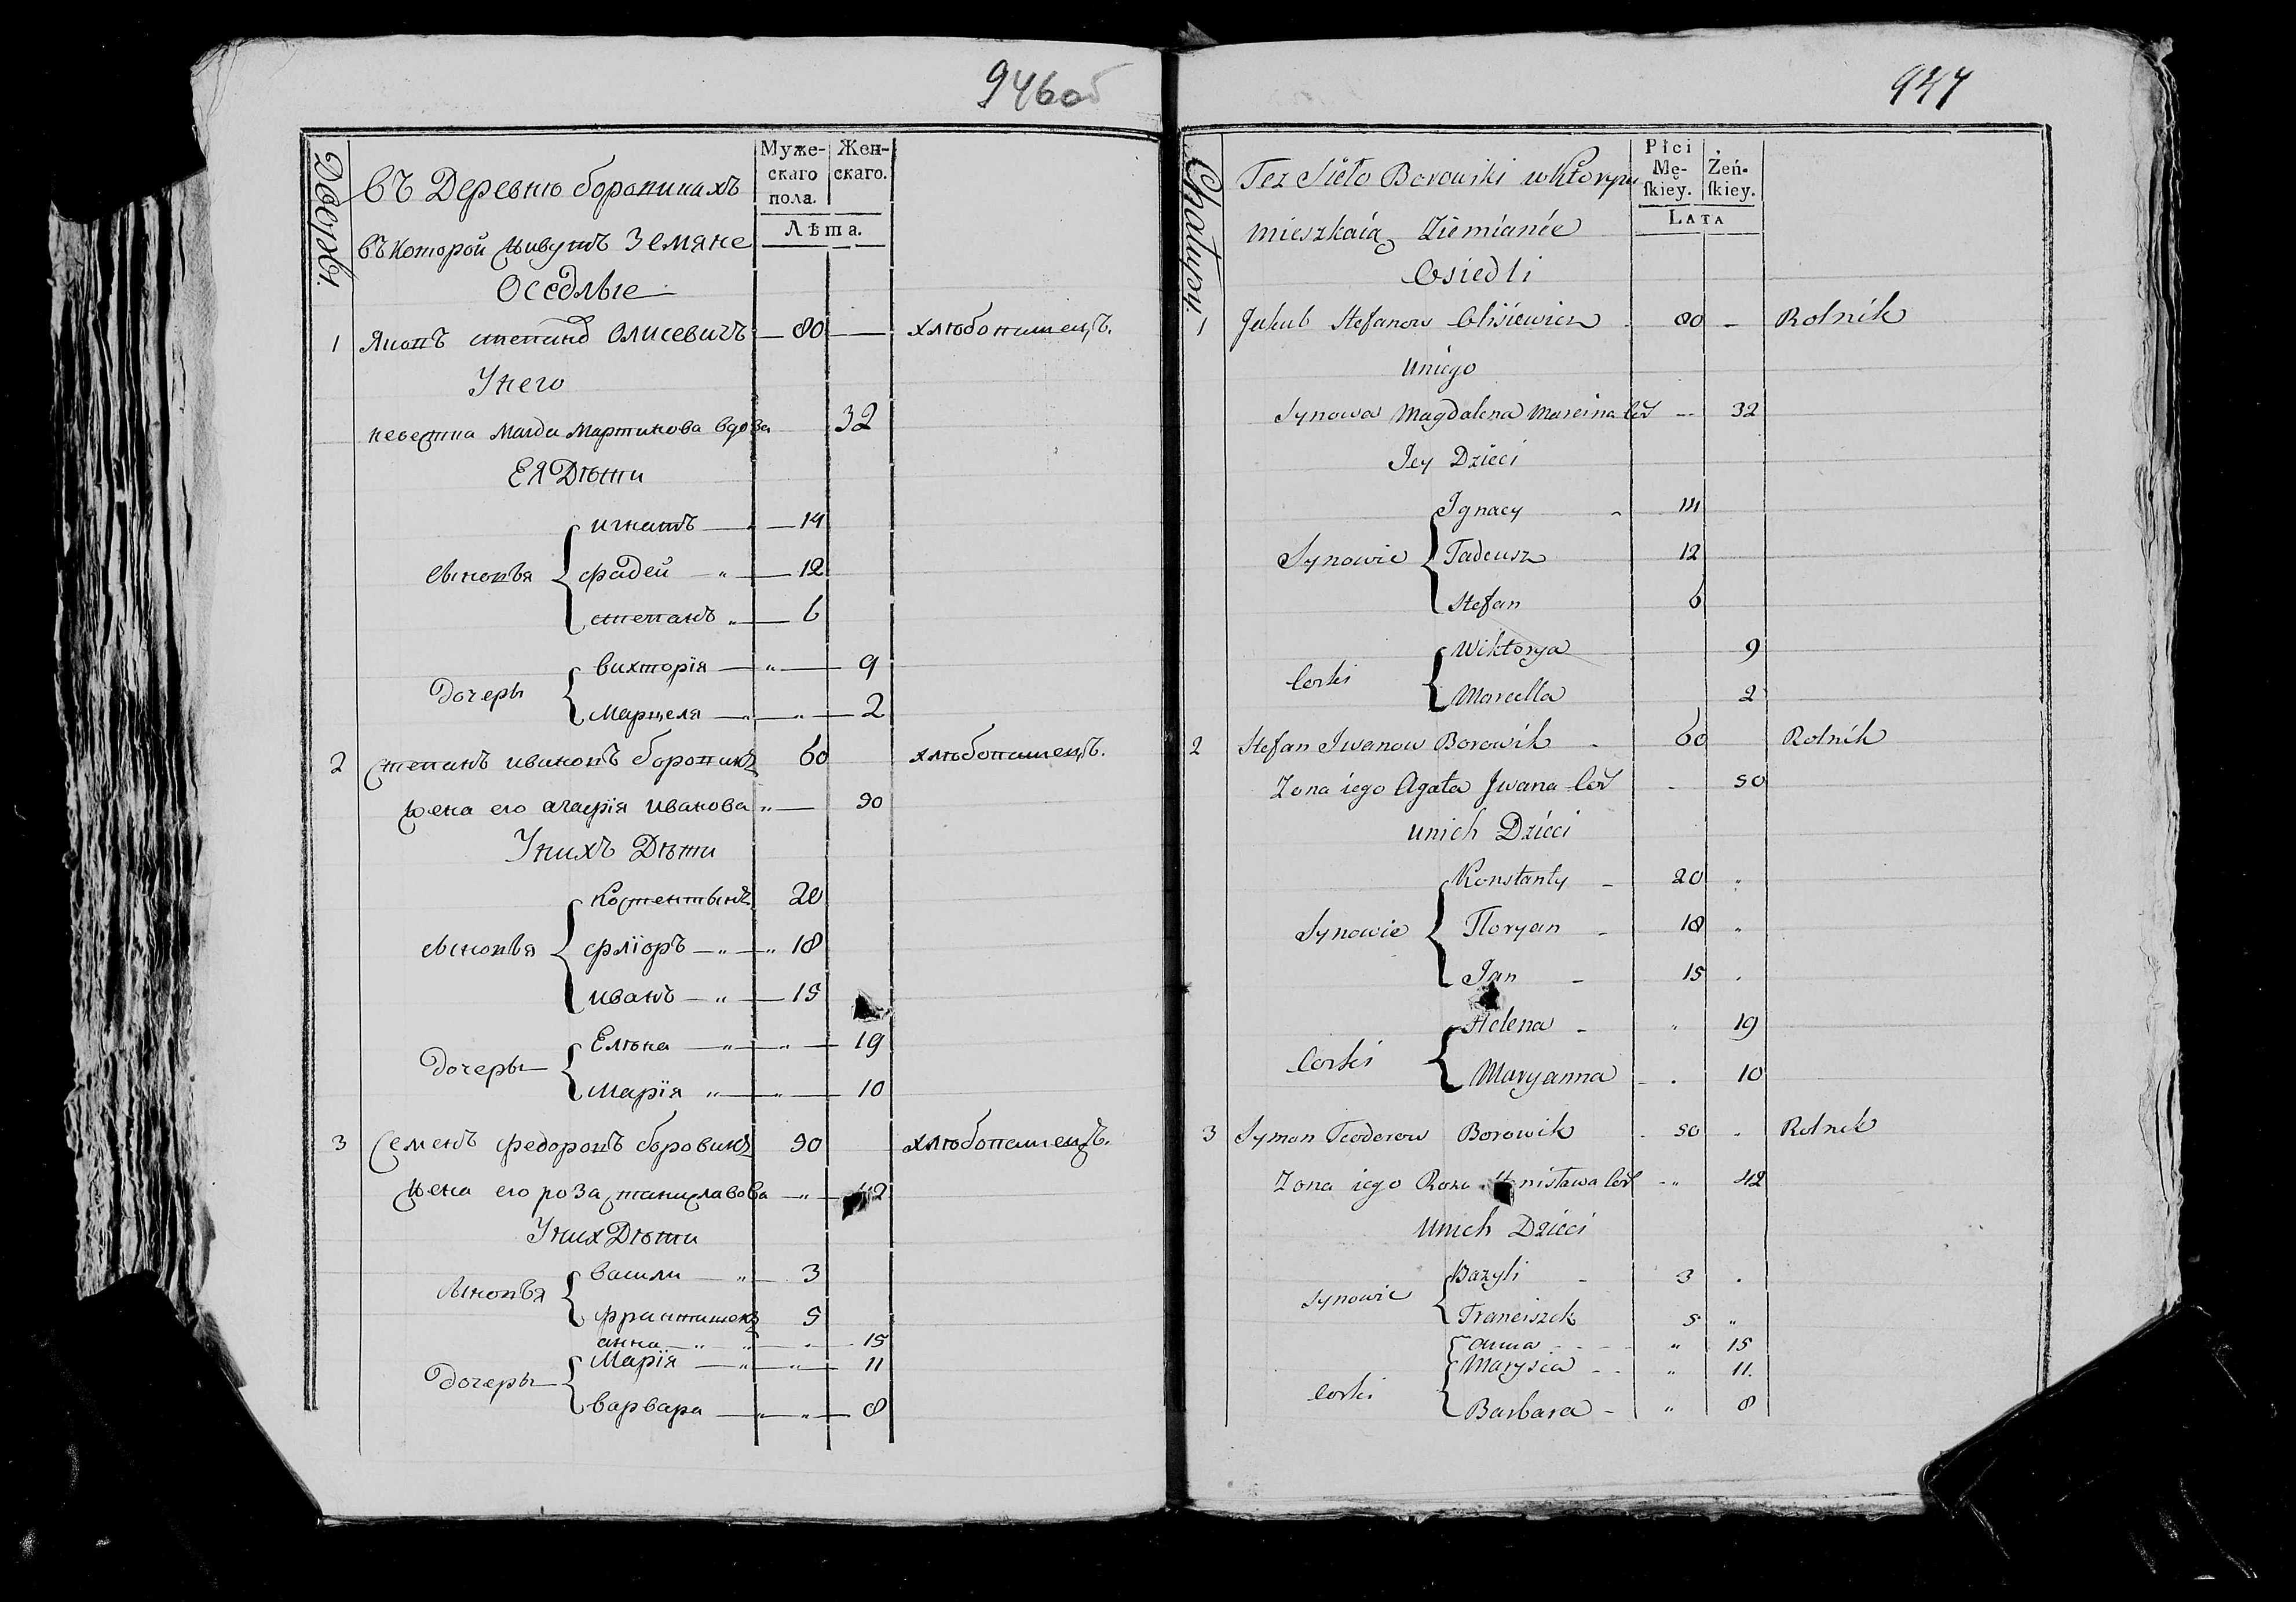 946об
Дворы.
Муже-
скаго
пола.
Жен-
скаго.
Лѣта.
въ Деревню боровикахъ
въ которой живутъ Земяне
Оседлые
1 Якопъ степанов Олисевичъ — 80 — хлюбопашецъ.
Унего
невестка Магда Мартинова вдова 32
ЕЯ Дѣти
сыновья { игнатъ — 14
фадей „ — 12
степанъ „ — 6
дочеры { викторія — „ — 9
Марцеля — „ — 2
2 степанъ ивановъ боровикъ 60 хлюбопашецъ.
жена его агафія иванова „ — 50
Унихъ Дѣти
сыновья { костентынъ 20
фліоръ — „ — „ 18
иванъ — „ — 15
дочеры { Елѣна — „ — „ — 19
Марія „ — „ — 10
3 семенъ федоровъ боровикъ 50 хлюбопашецъ.
жена его роза станиславова — „ — 42
Уних Дѣти
сыновья { васили — „ — 3
францишекъ 5
анна — „ „ — „ — 15
дочеры { Марія — „ — „ — 11
варвара — „ — „ — 8
947
Chałupy.
Płci
Mę-
ſkiey.
Żeń-
ſkiey.
LATA
Tez Sieło Borowiki wktorym
mieszkaią Ziemianie
Osiedli
1 Jakub Stefanow Olisiewicz - 80 - Rolnik
uniego
Synowa Magdalena Marcina Cor -- 32
Jey Dzieci
Synowie { Ignacy - 14
Tadeusz 12
Stefan 6
Corki { Wiktorya 9
Marcella 2
2 Stefan Iwanow Borowik - 60 Rolnik
Zona iego Agata Iwana Cor - 50
unich Dzieci
Synowie { Konstanty - 20 „
Floryan - 18 „
Jan - 15 .
Corki { Helena - „ 19
Maryanna - . 10
3 Symon Teodorow Borowik . 50 . Rolnik
Zona iego Roza nisława Cor - „ 42
unich Dzieci
Synowie { Bazyli - 3 .
Franciszek 5 „
{ Anna - - - „ 15
Corki { Marysia - - „ 11.
Barbara - „ 8